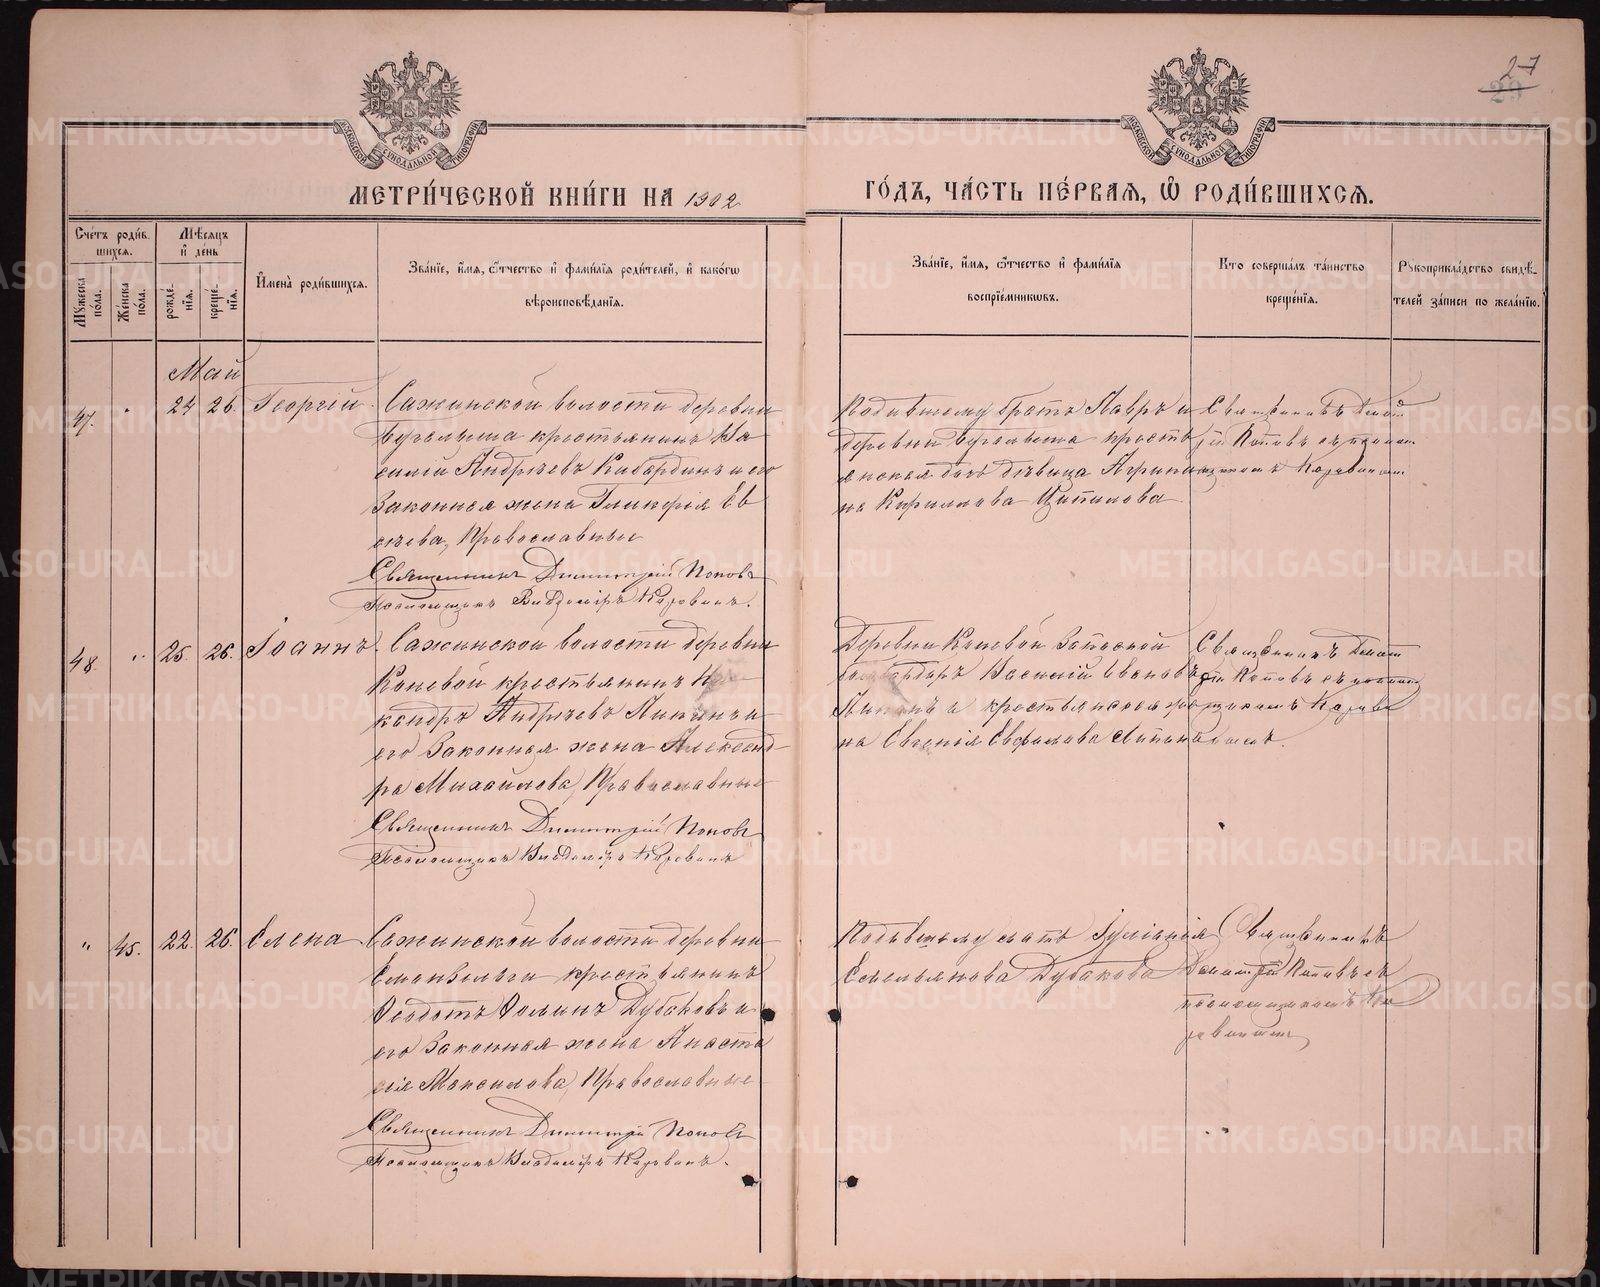 27
29
МОСКОВСКОЙ СѴНОДАЛЬНОЙ ТИПОГРАФІИ
МОСКОВСКОЙ СѴНОДАЛЬНОЙ ТИПОГРАФІИ
МЕТРИ́ЧЕСКОЙ КНИ́ГИ НА 1902
ГО́ДЪ, ЧА́СТЬ ПЕ́РВАѦ, Ѡ҆ РОДИ́ВШИХСѦ.
Сче́тъ роди́в-
шихсѧ.
Мꙋжеска по́ла.
Же́нска по́ла.
Мѣ́сѧцъ
и҆ де́нь
рожде́-
нїѧ.
креще́-
нїѧ.
И҆мена̀ роди́вшихсѧ.
Зва́нїе, и҆́мѧ, ѻ҆́тчество и҆ фами́лїѧ роди́телей, и҆ како́гѡ
вѣроисповѣ́данїѧ.
Зва́нїе, и҆́мѧ, ѻ҆́тчество и҆ фами́лїѧ
воспрїе́мникѡвъ.
Кто̀ соверша́лъ та́инство
креще́нїѧ.
Рꙋкоприкла́дство свидѣ́-
телей за́писи по жела́нїю.
Май
47. 24 26. Георгій. Сажинской волости деревни
крестьянинъ Ва
силій Андреевъ Кабардинъ и его
Законная жена Гликерія Ев
сѣева, Православные
Священникъ Димитрій Поповъ
Псаломщикъ Владиміръ Коровинъ.
Родившему братъ Лавръ и
деревни крестья
янская дочь дѣвица Агрипи
на Кириллова Ципилова
Священникъ Димит
рій Поповъ съ псалом
щикомъ Коровинымъ
48. " 25. 26. Іоаннъ. Сажинской волости деревни
Коневой крестьянинъ Ни
кандръ Андреевъ Липинъ и
его Законная жена Александ
ра Михайлова, Православные
Священникъ Димитрій Поповъ
Псаломщикъ Владиміръ Коровинъ
Деревни Коневой Запасной
бомбардиръ Василій Ивановъ
Липинъ и крестьянская же
на Евгенія Евфимова Липина
Священникъ Димит
рій Поповъ съ псалом
щикомъ Корови
нымъ.
" 45. 22. 26. Елена. Сажинской волости деревни
крестьянинъ
Ѳеодотъ Ѳоминъ Дубаковъ и
его Законная жена Анаста
сія Максимова, Православные
Священникъ Димитрій Поповъ
Псаломщикъ Владиміръ Коровинъ.
Родившему мать Іуліанія
Емельянова Дубакова
Священникъ
Димитрій Поповъ съ
псаломщикомъ Ко
ровинымъ
METRIKI.GASO-URAL.RU